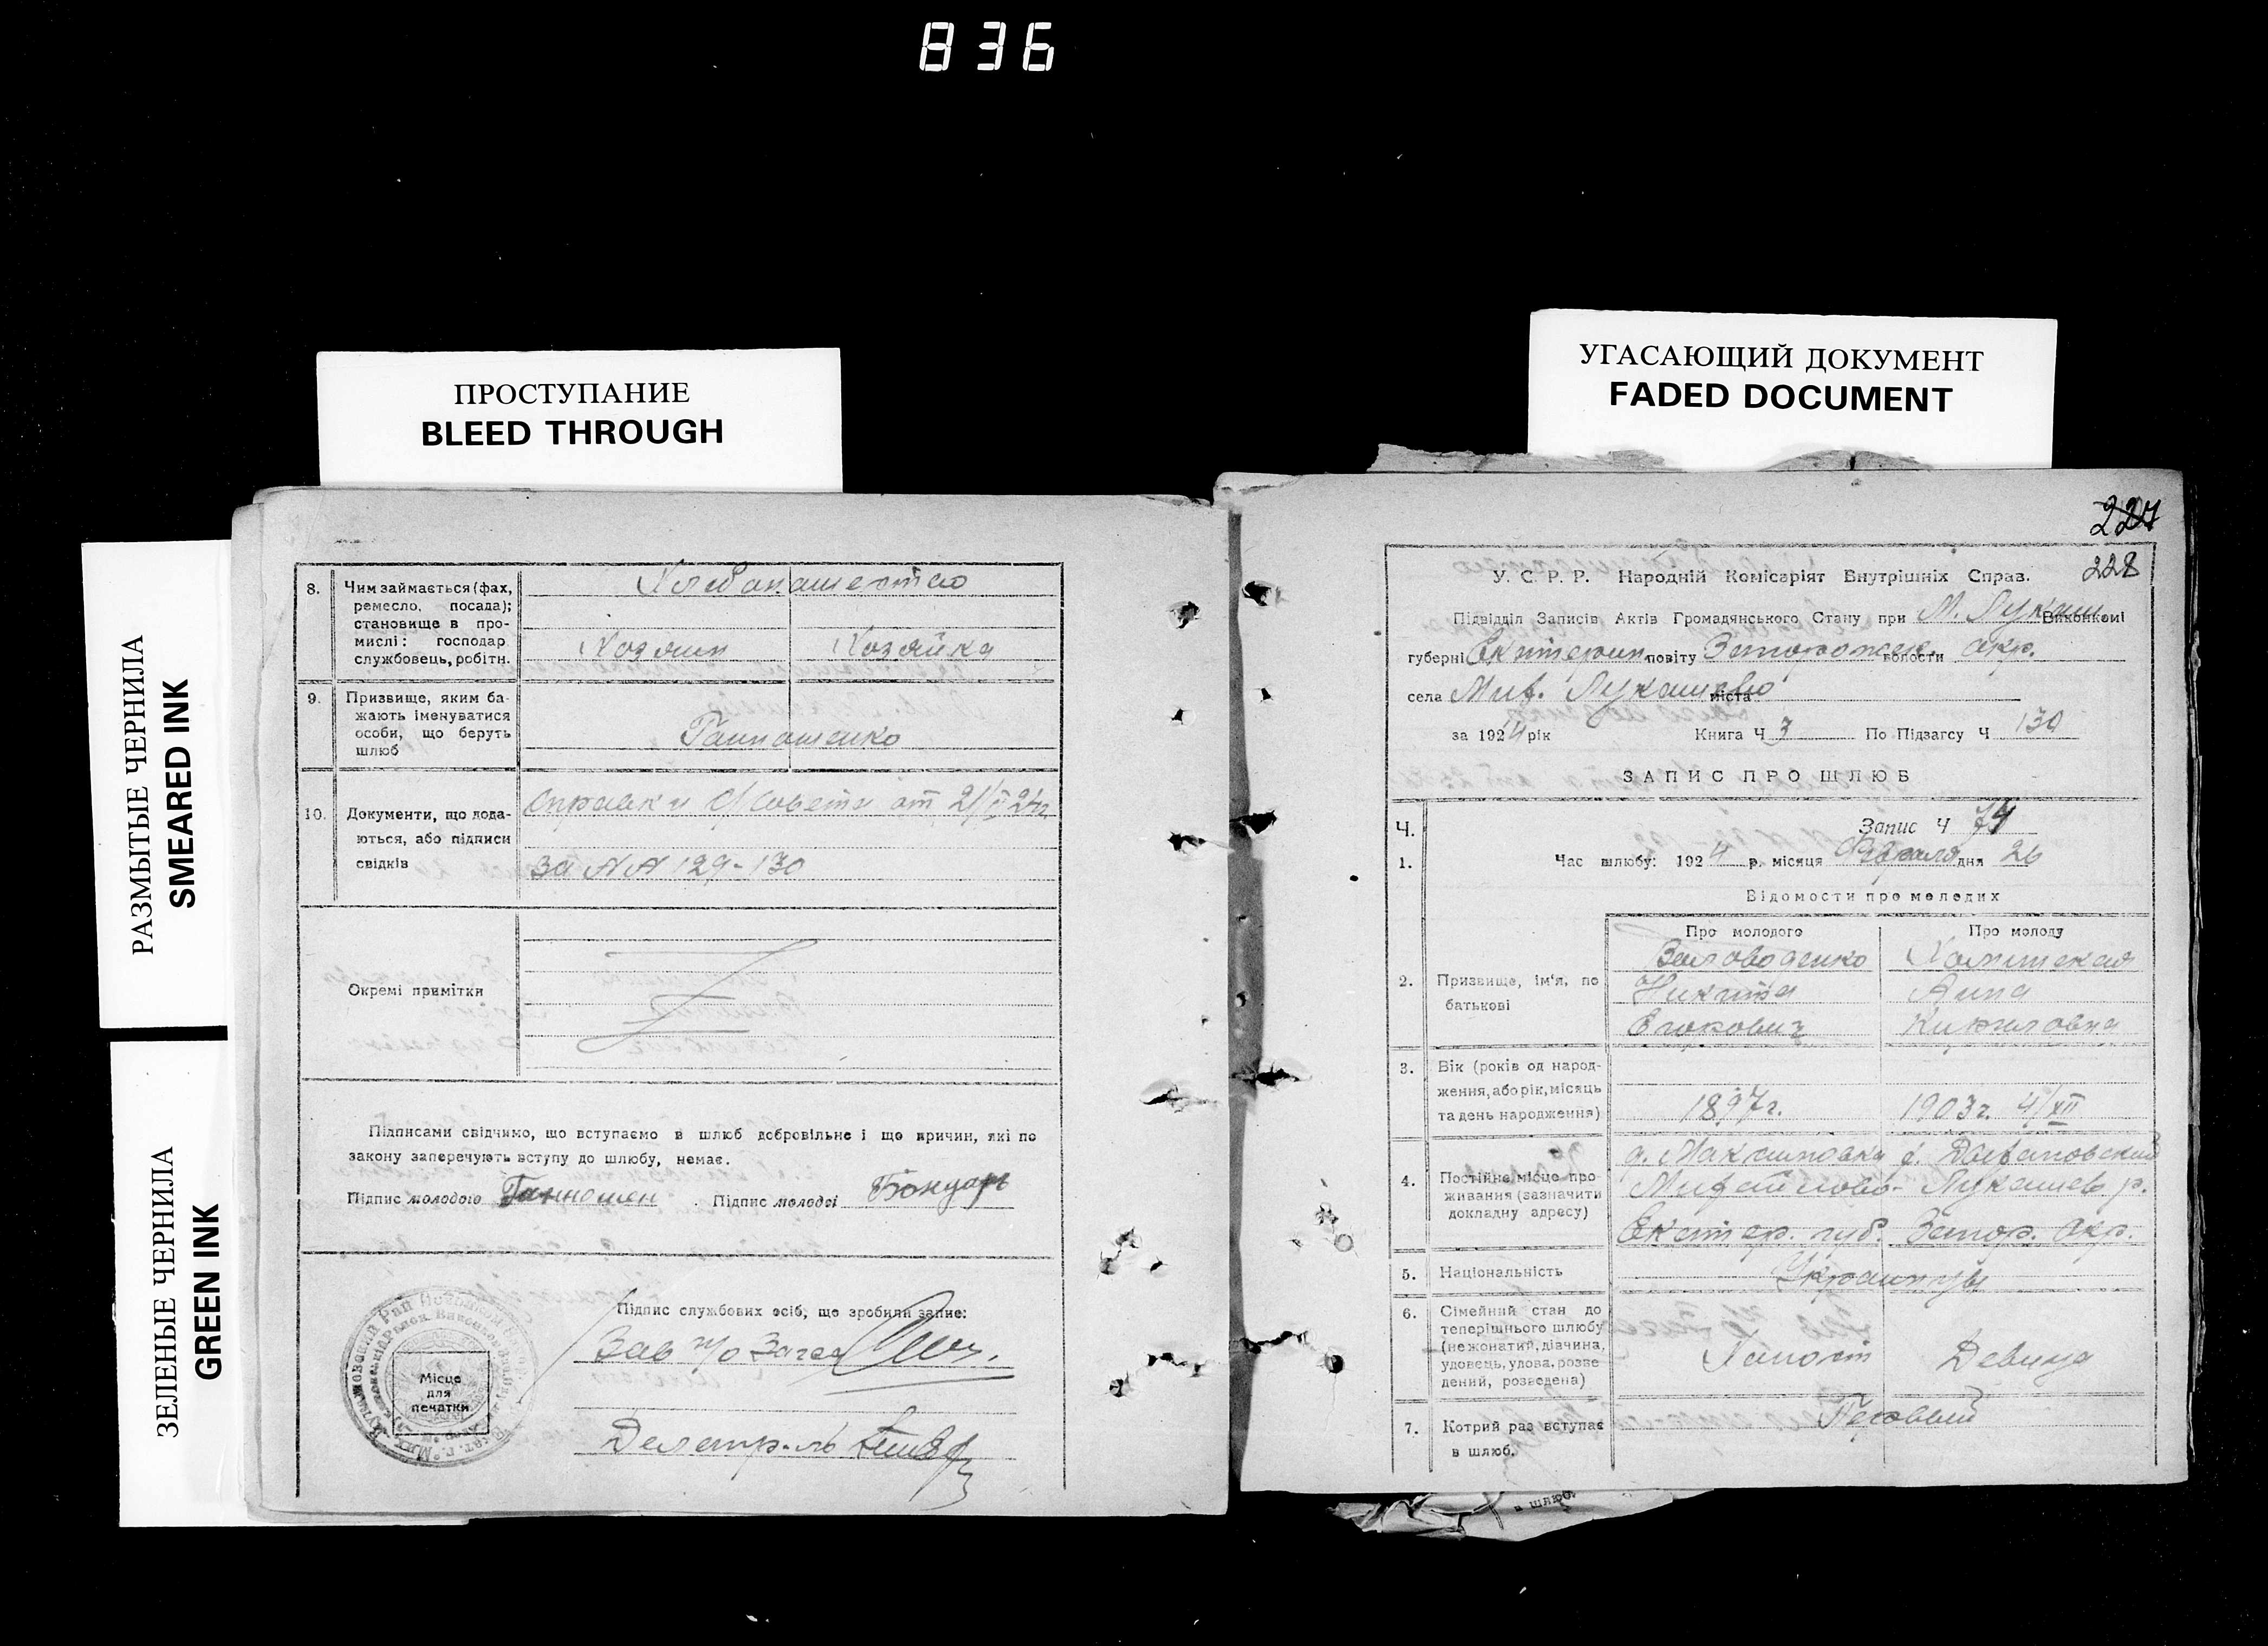 836
ПРОСТУПАНИЕ
BLEED THROUGH
УГАСАЮЩИЙ ДОКУМЕНТ
FADED DOCUMENT
РАЗМЫТЫЕ ЧЕРНИЛА
SMEARED INK
ЗЕЛЕНЫЕ ЧЕРНИЛА
GREEN INK
8. Чим займається (фах, ремесло, посада);
становище в про-
мислі: господар
службовець, робітн.
Хозяин Хозяйка
9. Призвище, яким ба-
жають іменуватися
особи, що беруть
шлюб
10. Документи, що дода-
ються, або підписи
свідків
Справки с/совета от 21/II 24г.
за №№ 129-130
Окремі примітки
Підписами свідчимо, що вступаємо в шлюб добровільне і що причин, які по
закону заперечують вступу до шлюбу, немає.
Підпис молодого Підпис молодої Бондарь
Підпис службових осіб, що зробили запис:
Зав п/о Загса
Місце
для
печатки
Делопр-ль
227
228
У. С. Р. Р. Народній Комісаріят Внутрішніх Справ.
Підвідділ Записів Актів Громадянського Стану при М. Лукаш Виконкомі
губерні Екатерин повіту Запорожск. волости окр.
села Мих. Лукашево міста
за 1924 рік Книга Ч 3 По Підзагсу Ч 130
ЗАПИС ПРО ШЛЮБ
Ч. Запис Ч 74
1. Час шлюбу: 1924 р. місяця Февраля дня 26
Відомости про молодих
Про молодого Про молоду
2. Призвище, ім'я, по
батькові
Никита Анна
3. Вік (років од народ-
ження, або рік, місяць
та день народження)
1897г. 1903г. 4/XII
4. Постійне місце про-
живання (зазначити
докладну адресу)
Михайлово- Лукашев р.
Екатер. губ. Запор. Окр.
5. Національність Украинцы
6. Сімейний стан до
теперішнього шлюбу
(нежонатий, дівчина,
удовець, удова, розве
дений, розведена)
Холост Девица
7. Котрий раз вступає
в шлюб.
Первый